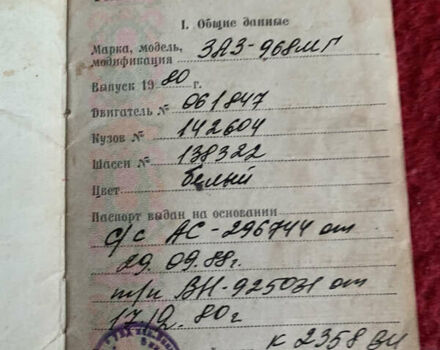 I. Общие данные
Марка, модель,
модификация ЗАЗ-968МГ
Выпуск 1980 г.
Двигатель № 061847
Кузов № 142604
Шасси № 138322
Цвет белый
Паспорт выдан на основании
с/с АС-296744 от
29.09.88г.
т/п ВН-925031 от
17.12.80г
к 2358 ВИ